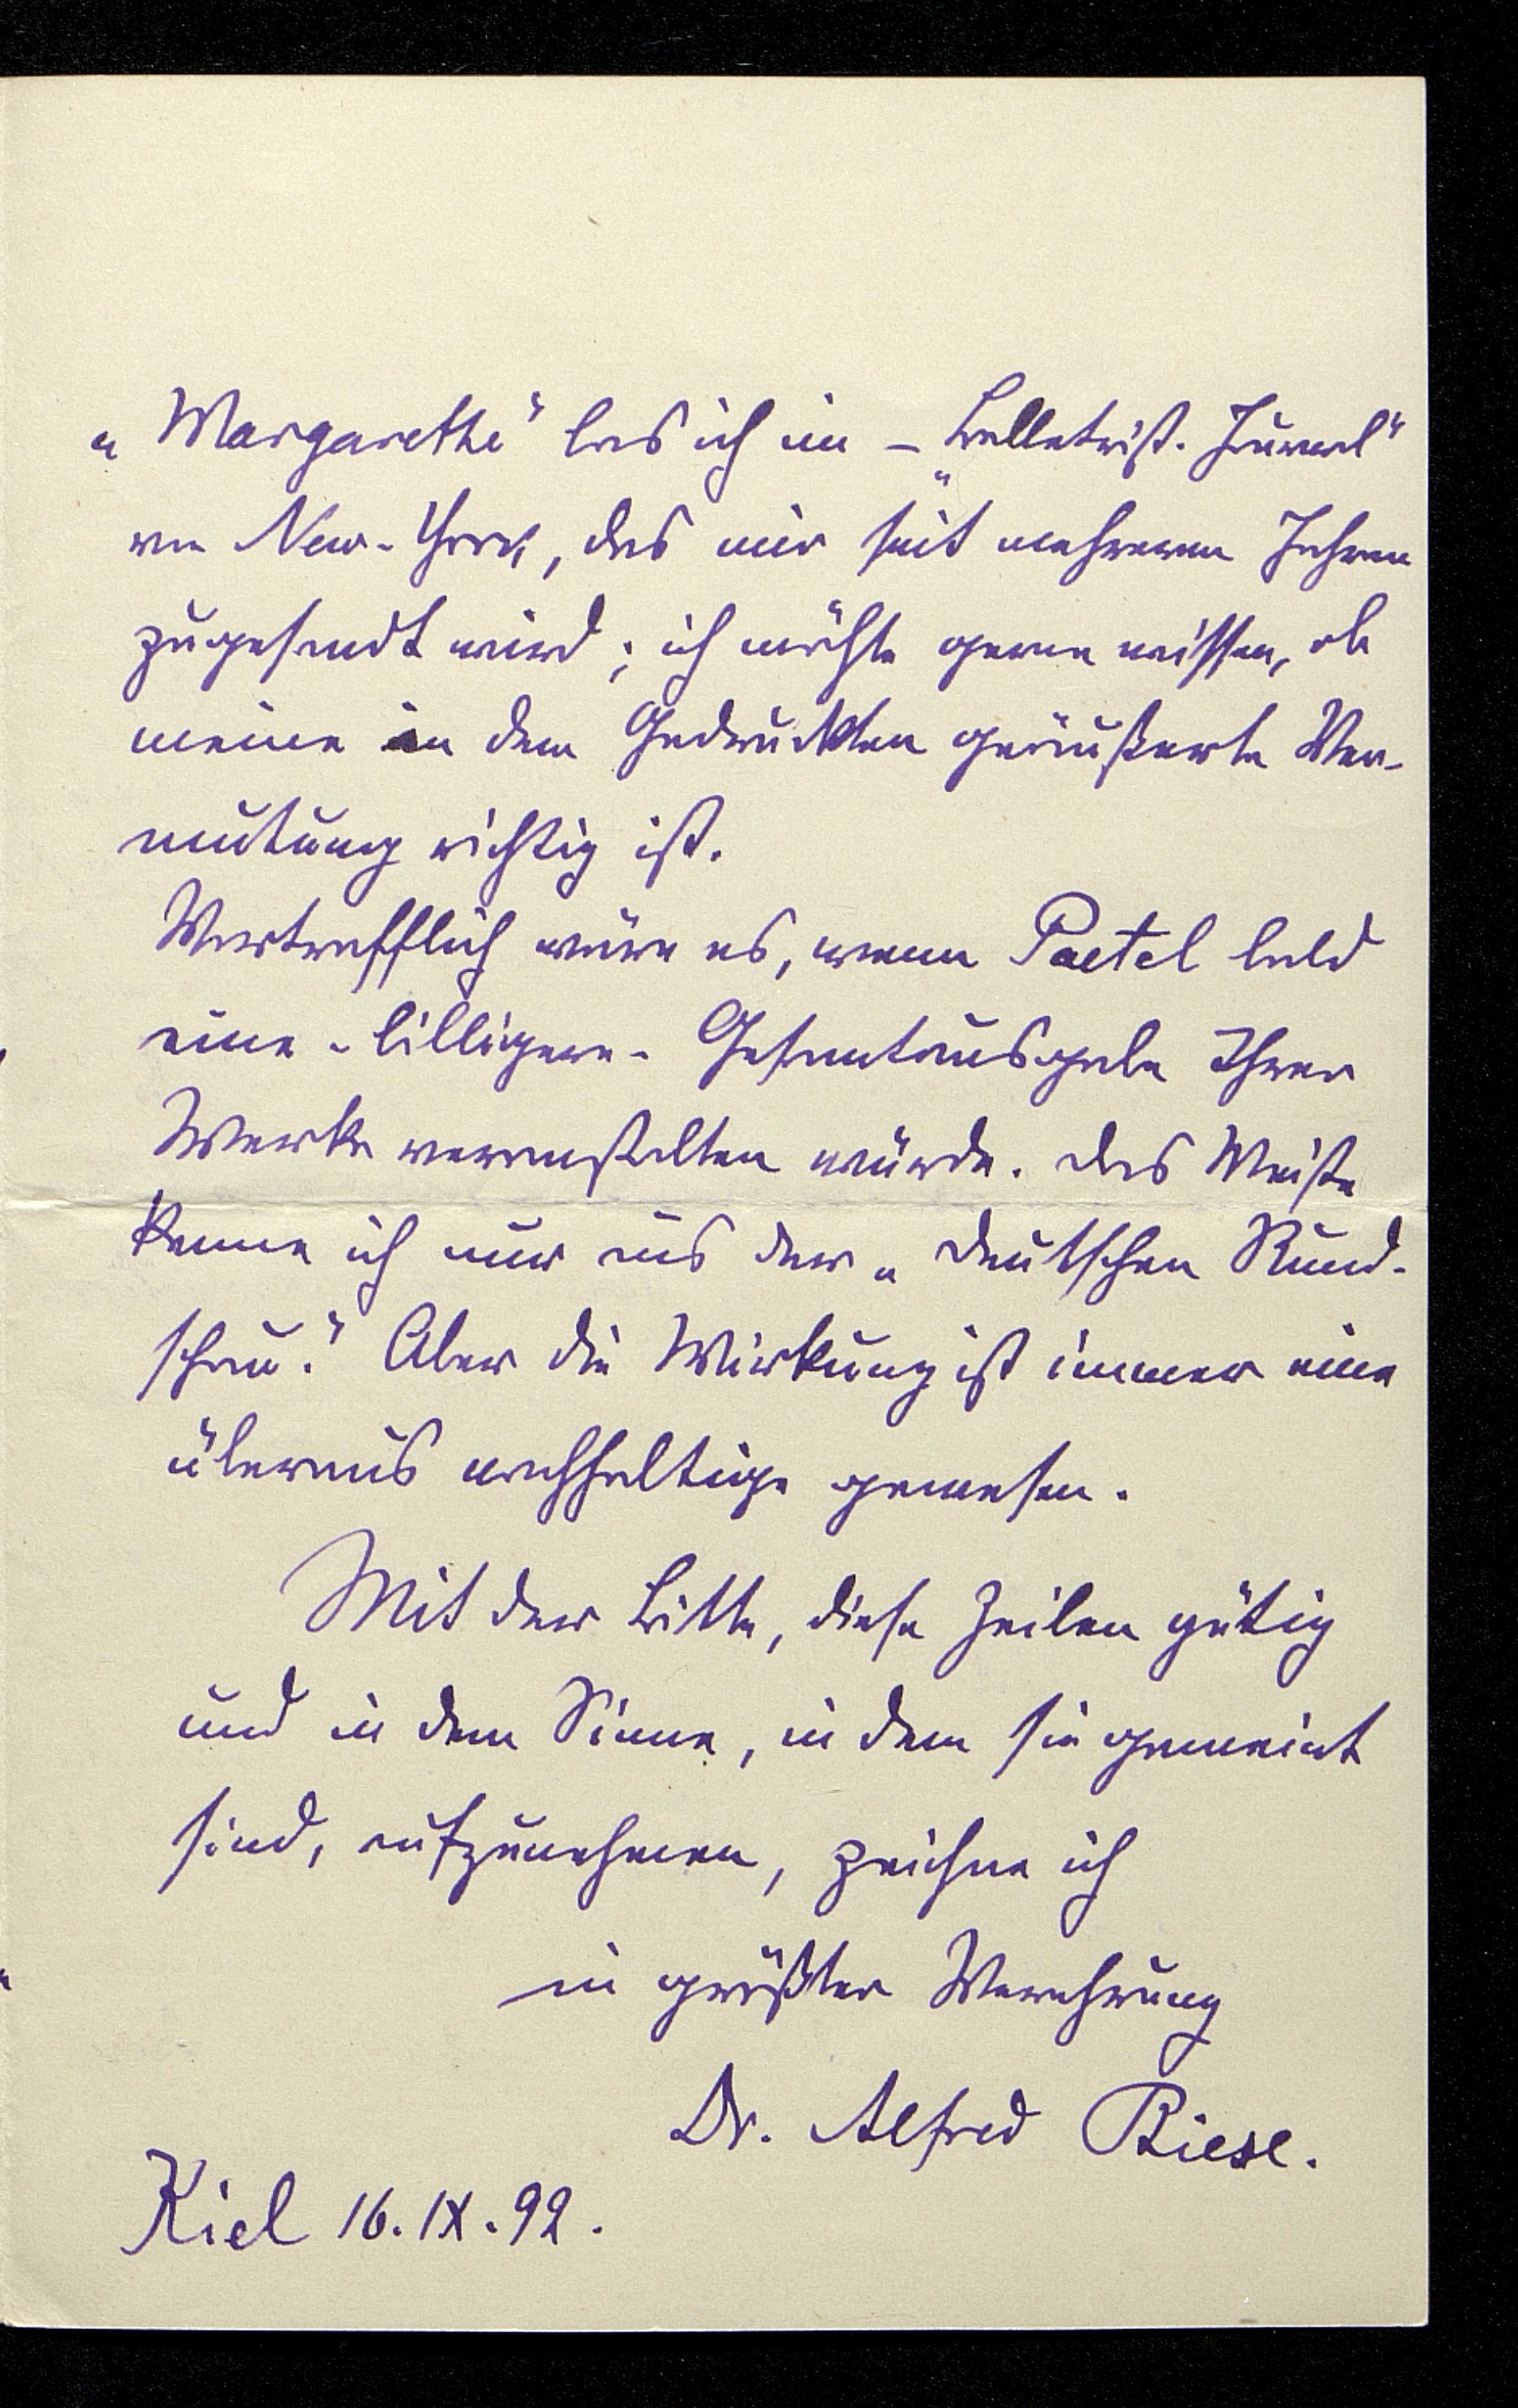 „Margarethe“ las ich im – „Belletrist. Journal“
von New-York, das mir seit mehreren Jahren
zugesandt wird; ich möchte gerne wissen, ob
meine in dem Gedruckten geäußerte Ver-
mutung richtig ist.
Vortrefflich wäre es, wenn Paetel bald
eine – billigere – Gesamtausgabe Ihrer
Werke veranstalten würde. Das Meiste
kenne ich nur aus der „Deutschen Rund-
schau“. Aber die Wirkung ist immer eine
überaus nachhaltige gewesen.
Mit der Bitte, diese Zeilen gütig
und in dem Sinne, in dem sie gemeint
sind, aufzunehmen, zeichne ich
in größter Verehrung
Dr. Alfred Biese.
Kiel 16. IX. 92.